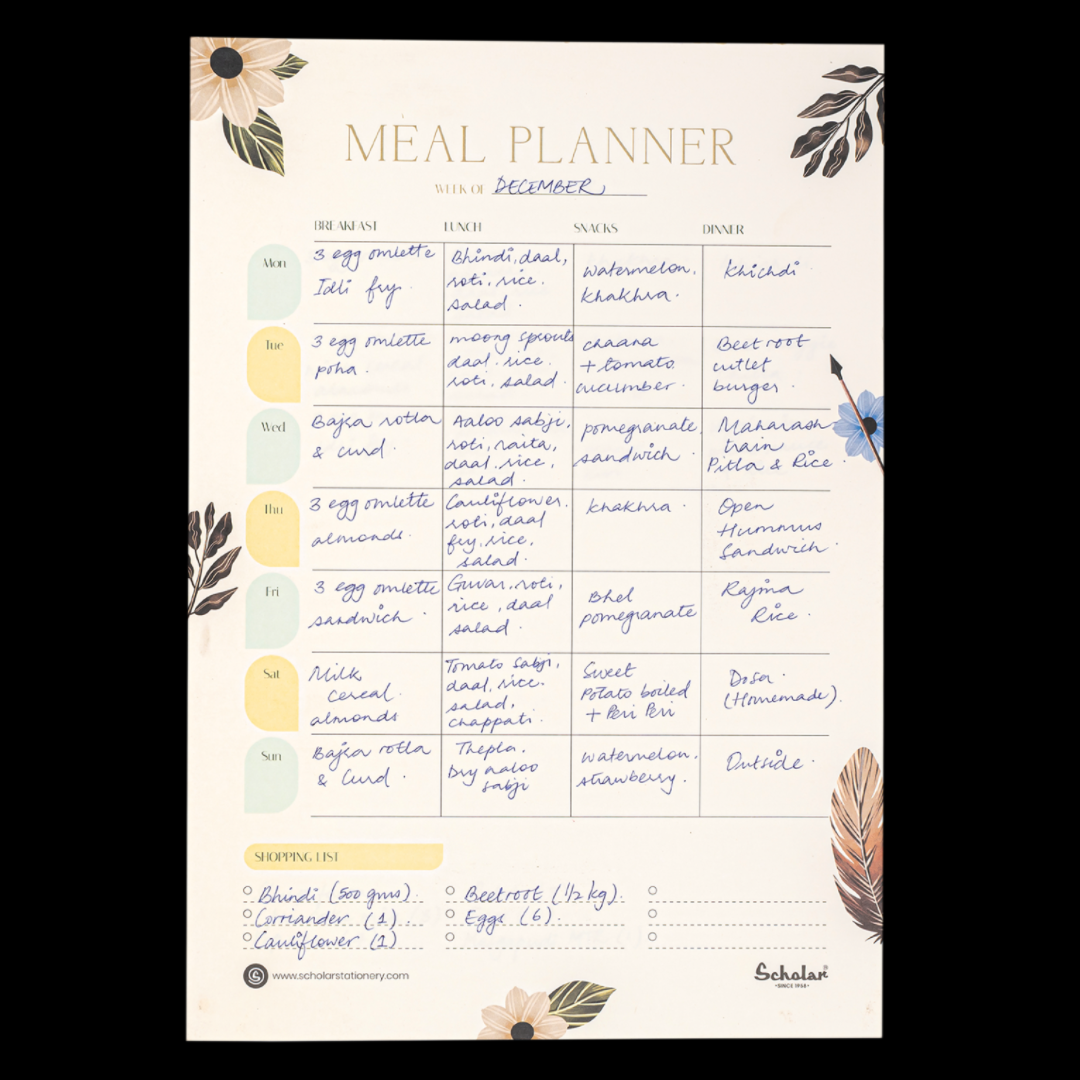 MEAL PLANNER
WEEK OF DECEMBER
BREAKFAST LUNCH SNACKS DINNER
Mon
3 egg omlette
Idli fry.
Bhindi, daal,
roti, rice.
salad.
watermelon.
khakhra.
Khichdi.
Tue
3 egg omlette
poha.
moong sprouts
daal. rice.
roti, salad.
chaana
+ tomato
cucumber.
Beetroot
cutlet
burger.
Wed
Bajra rotla
& curd.
Aaloo sabji,
roti, raita,
daal. rice,
salad.
pomegranate.
sandwich.
Maharash
train
Pitla & Rice.
Thu
3 egg omlette
almonds.
Cauliflower.
roti, daal
fry, rice,
salad.
khakhra.
Open
Hummus
Sandwich.
Fri
3 egg omlette
sandwich.
Guvar. roti,
rice, daal
salad.
Bhel
pomegranate
Rajma
Rice.
Sat
Milk
cereal.
almonds
Tomato Sabji,
daal, rice.
salad,
chappati.
Sweet
Potato boiled
+ Peri Peri
Dosa.
(Homemade).
Sun
Bajra rotla
& Curd.
Thepla.
Dry aaloo
sabji
watermelon.
strawberry.
Outside.
SHOPPING LIST
Bhindi (500 gms).
Corriander (1).
Cauliflower (1)
Beetroot (1/2 kg).
Eggs (6).
www.scholarstationery.com
Scholar®
•SINCE 1958•